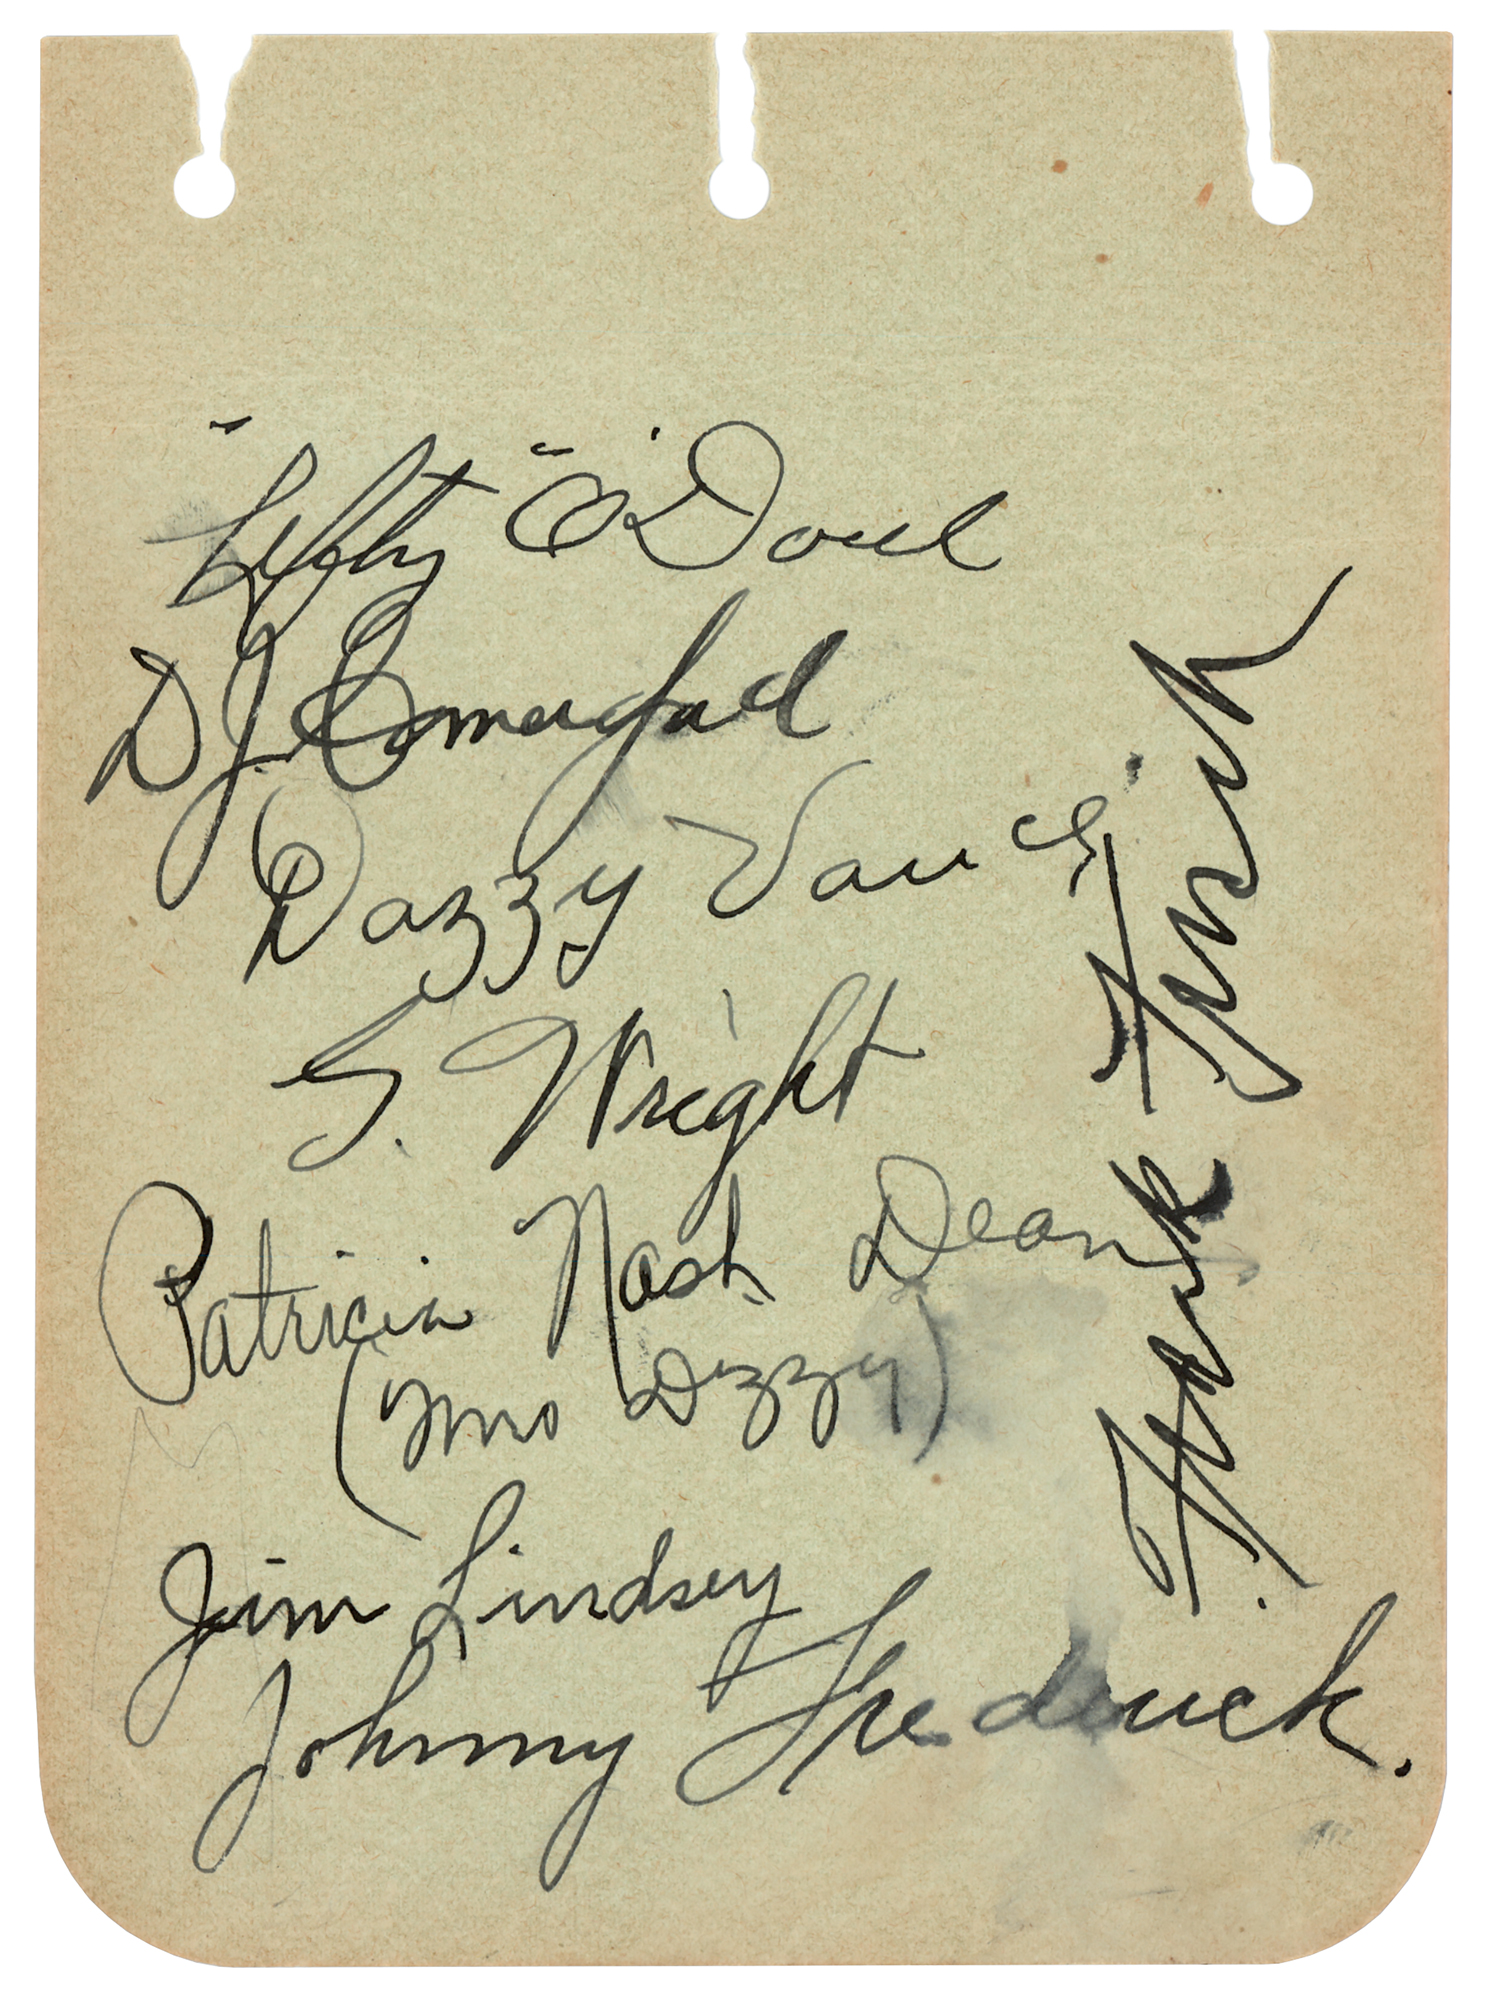 "Lefty" O'Doul
D. J. Comerford
Dazzy Vance
G. Wright
Patricia Nash Dean
(Mrs Dizzy)
Jim Lindsey
Johnny Frederick.
Hank